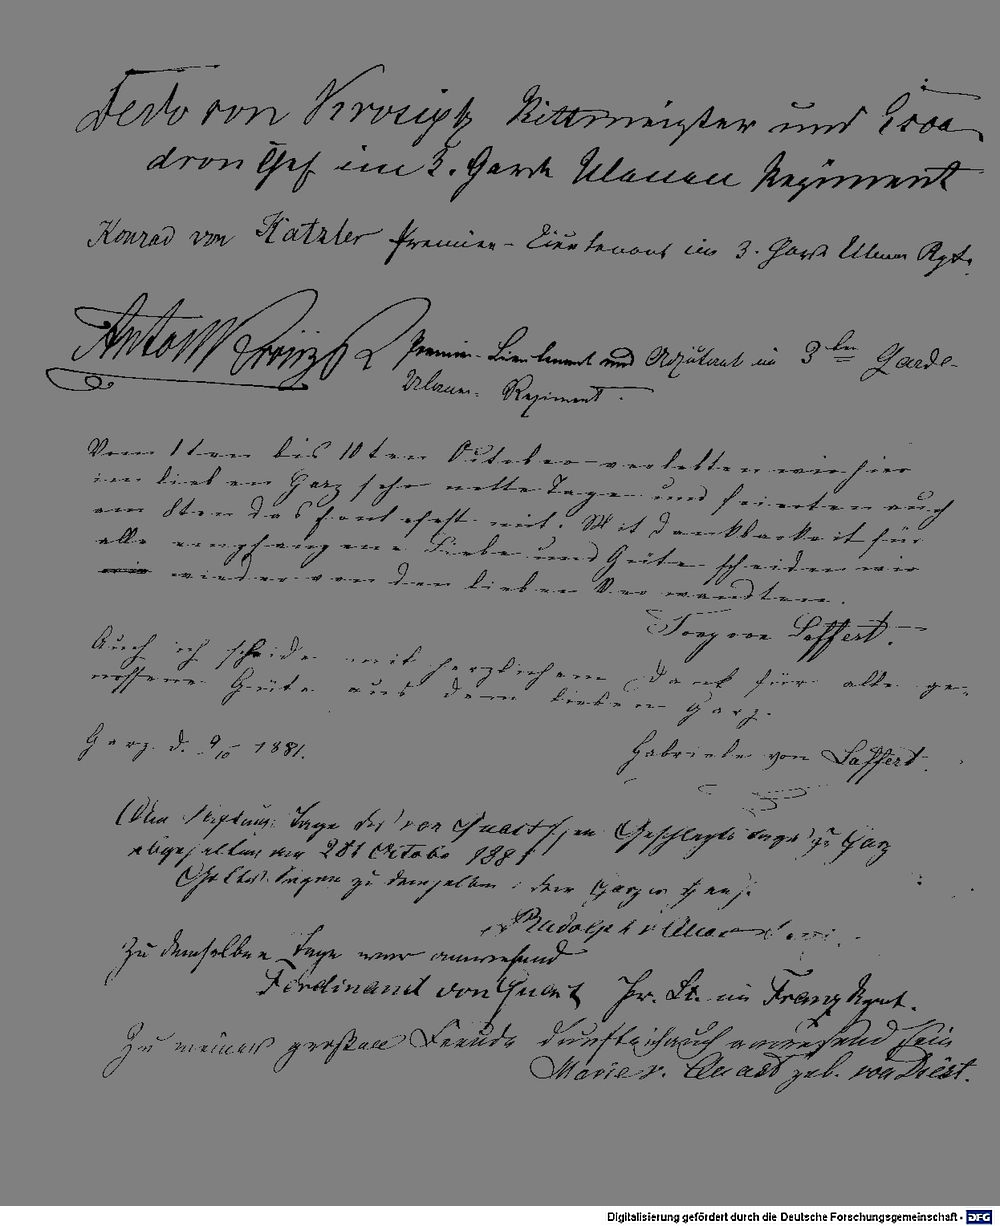 Dedo von Krosigk Rittmeister und Esca
dron Chef im 3. Garde Ulanen Regiment
Konrad von Katzler Premier-Lieutenant im 3. Garde Ulanen Rgt.
Anton Premier-Lieutenant und Adjutant im 3ten Garde-
Ulanen-Regiment.
Vom 1ten bis 10ten October verlebten wir hier
im lieben Garz sehr nette Tage und feierten auch
am 8ten das mit. Mit Dankbarkeit für
alle empfangene Liebe und Güte scheiden wir
wieder von den lieben Verwandten.
von Laffert.
Auch ich scheide mit herzlichem Dank für alle ge-
nossene Güte aus dem lieben Garz.
Garz d. 9/10 1881.
Gabriele von Laffert.
Tage des von Quast'schen Geschlechts tags zu Garz
abgehalten am 28t October 1881
zu demselben: dem Garzer
Rudolph v Quast
Zu demselben Tage war anwesend
Ferdinand von Quast Pr. Lt. im Franz Rgmt.
Zu meiner großen Freude durfte ich auch anwesend sein
Marie v. Quast geb. von Diest.
Digitalisierung gefördert durch die Deutsche Forschungsgemeinschaft - DFG